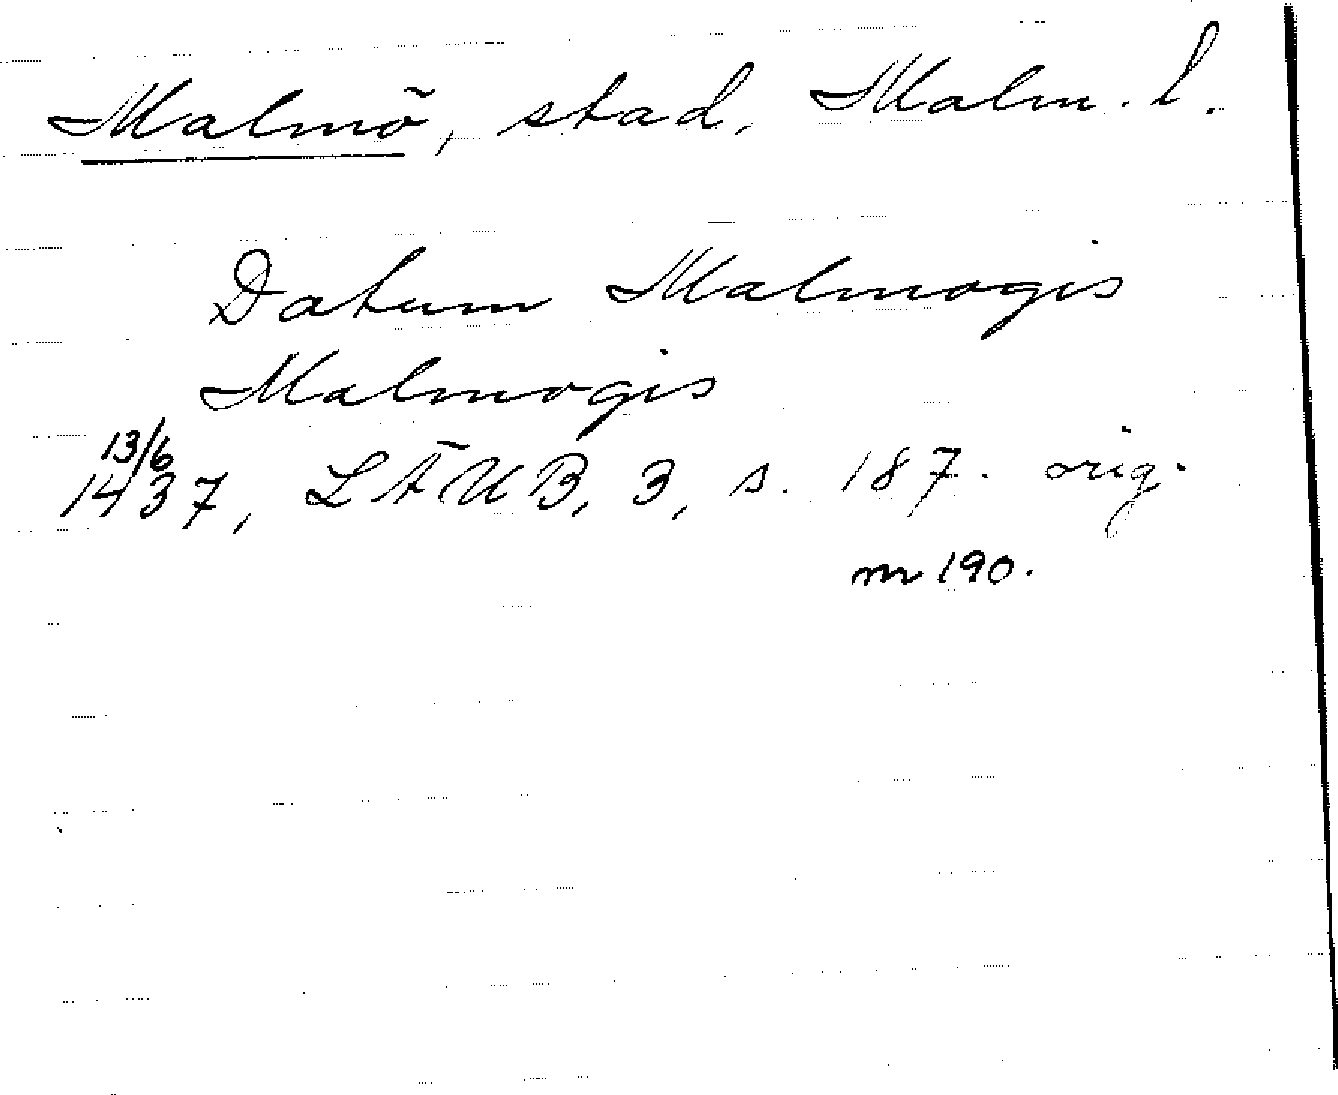 Malmö, stad, Malm. l.
Datum Malmogis
Malmogis
13/6
1437, LÄUB, 3, s. 187. orig.
nr 190.